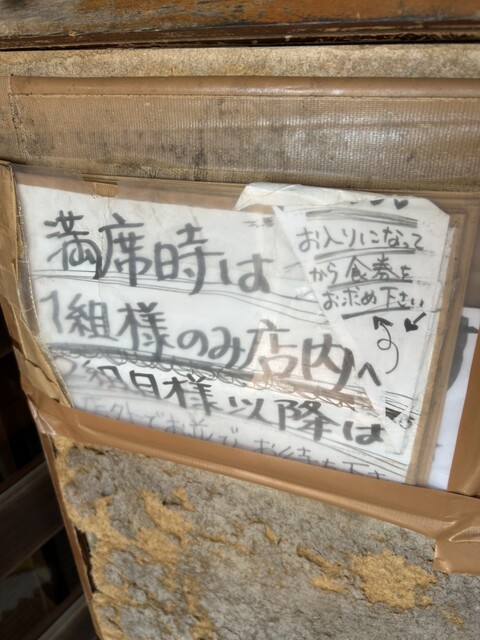 満席時は
1組様のみ店内へ
2組目様以降は
でお並び お待ち下さ
お入りになって
から食券を
お求め下さい